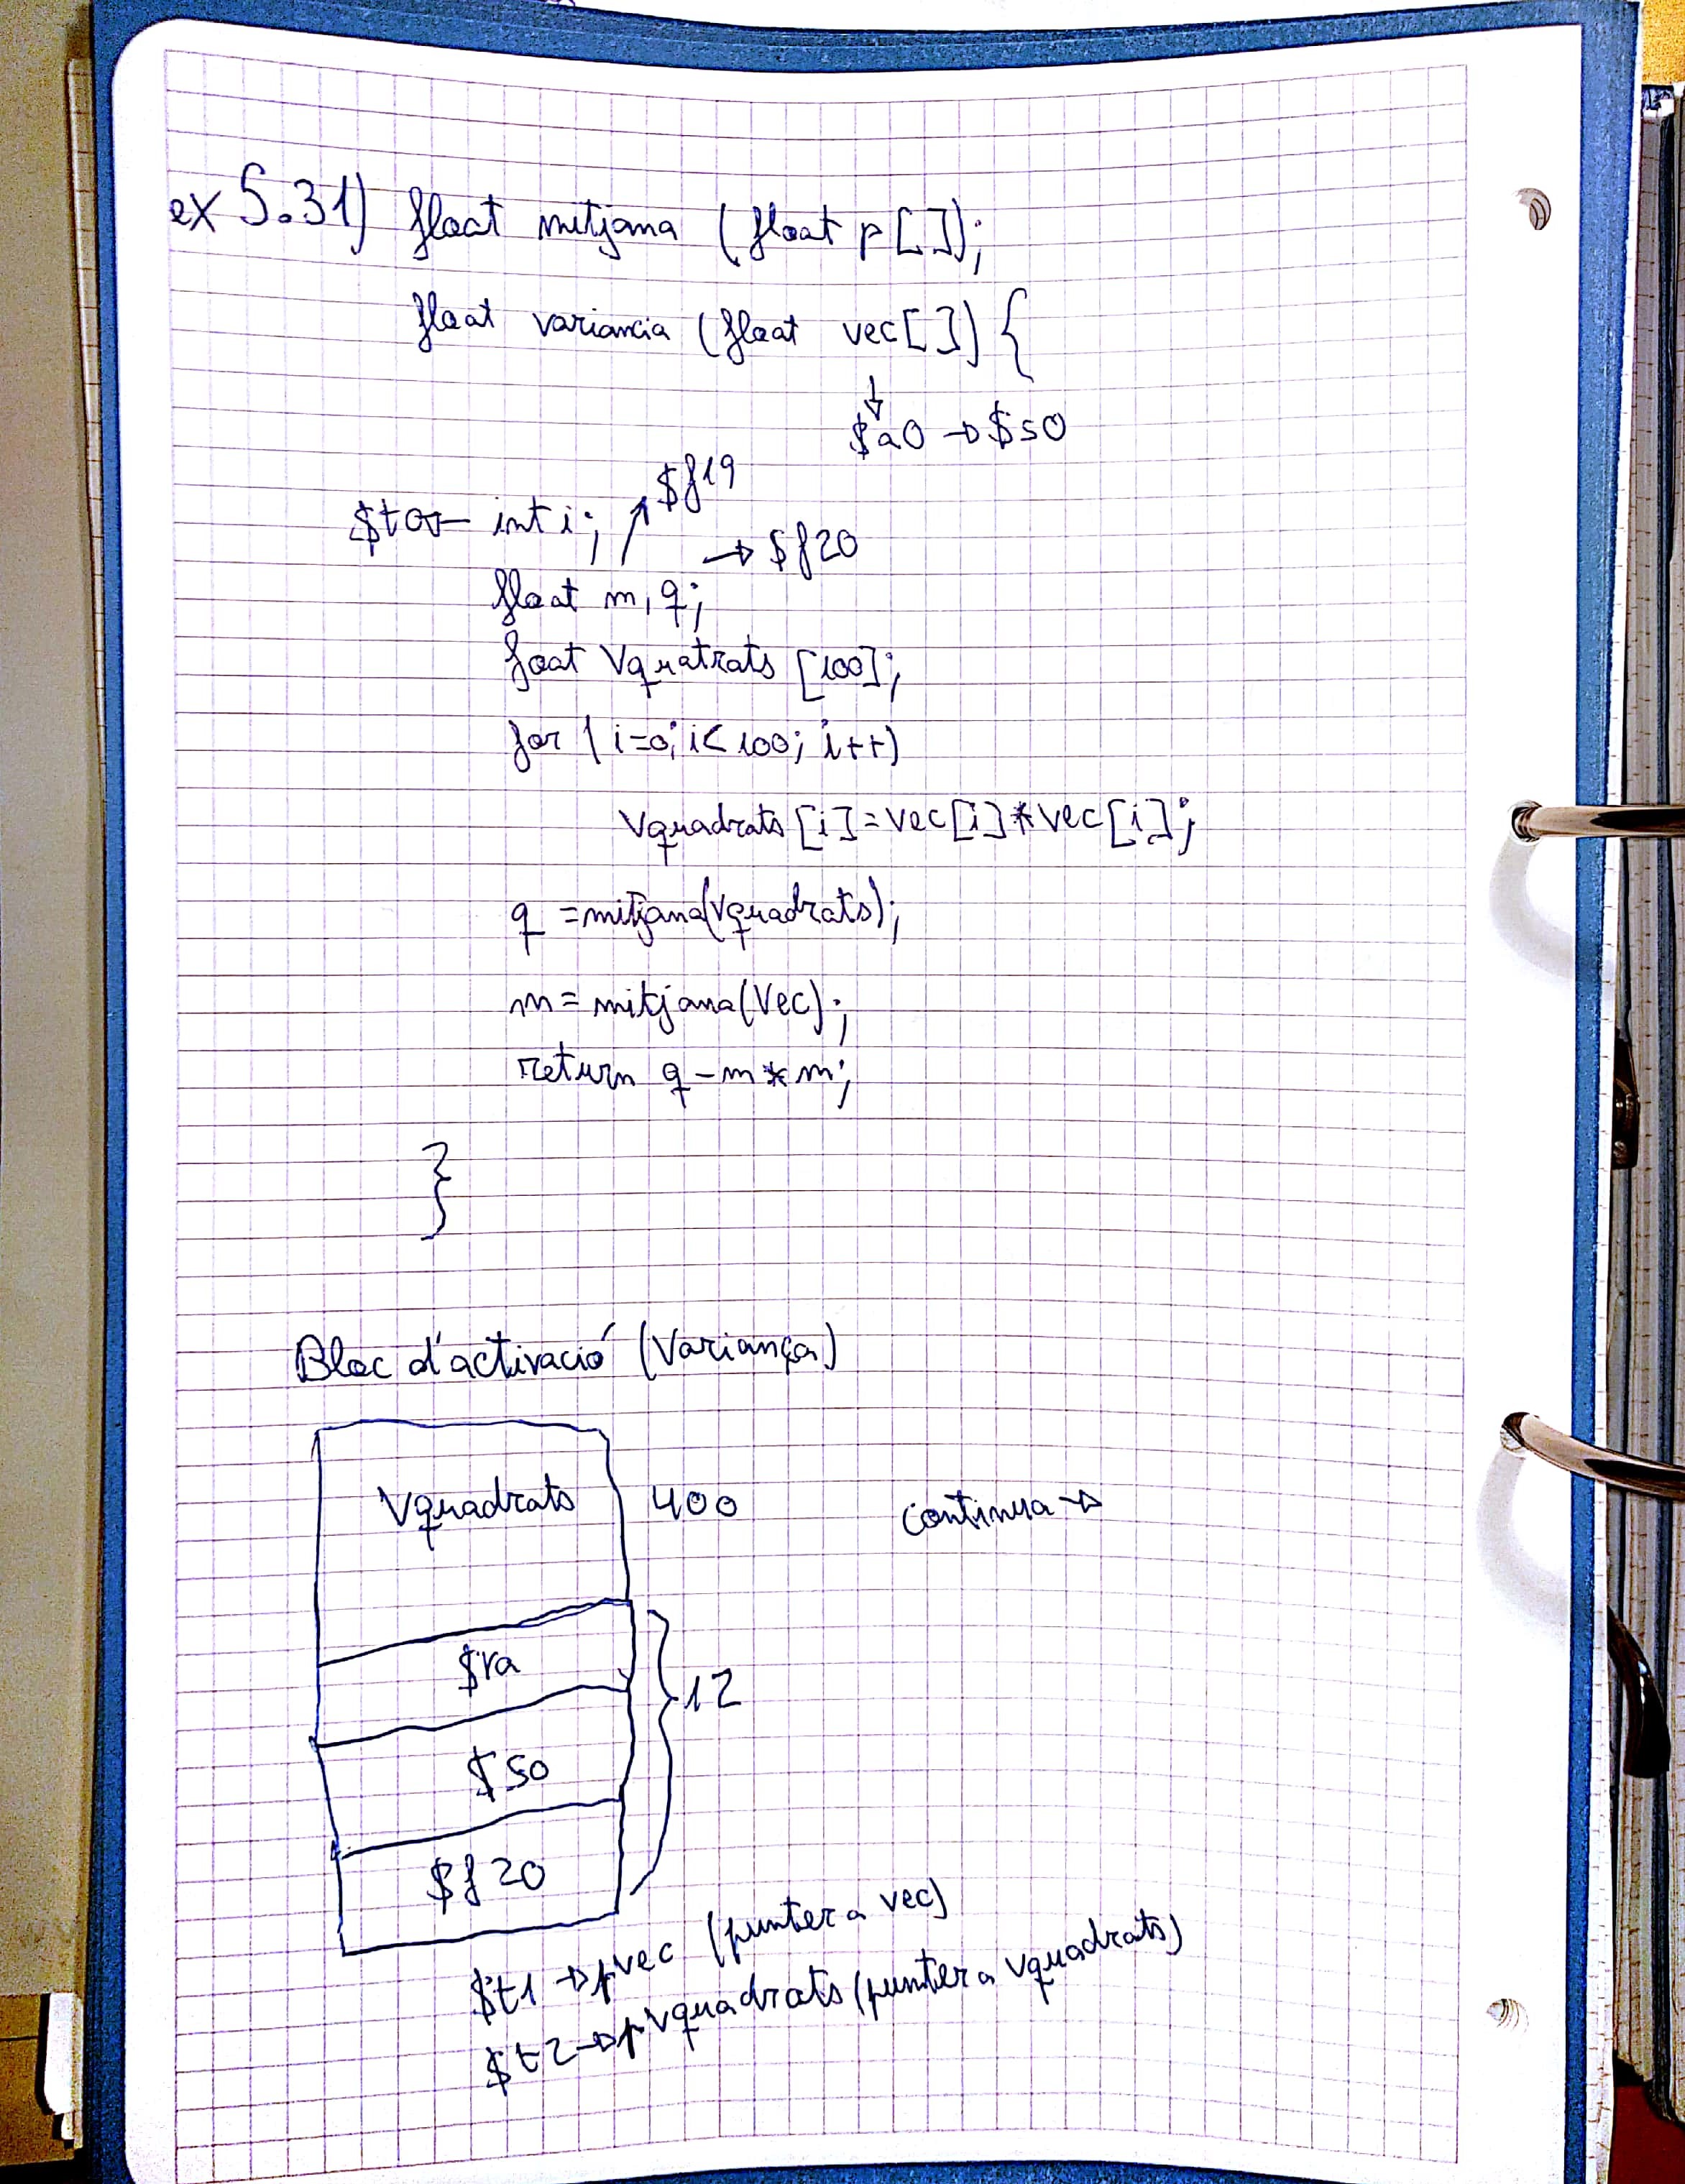 ex 5.31) float mitjana (float p[]);
float variancia (float vec[]) {
↓
$a0 → $s0
$f19
$t0 ← int i;
→ $f20
float m, q;
foat Vquatrats [100];
for (i=0; i<100; i++)
Vquadrats [i] = vec[i] * vec[i];
q = mitjana(Vquadrats);
m = mitjana(Vec);
return q - m * m;
}
Bloc d'activació (Variança)
Vquadrats 400
continua →
$ra
12
$s0
$f20
$t1 → pvec (punter a vec)
$t2 → pvquadrats (punter a vquadrats)